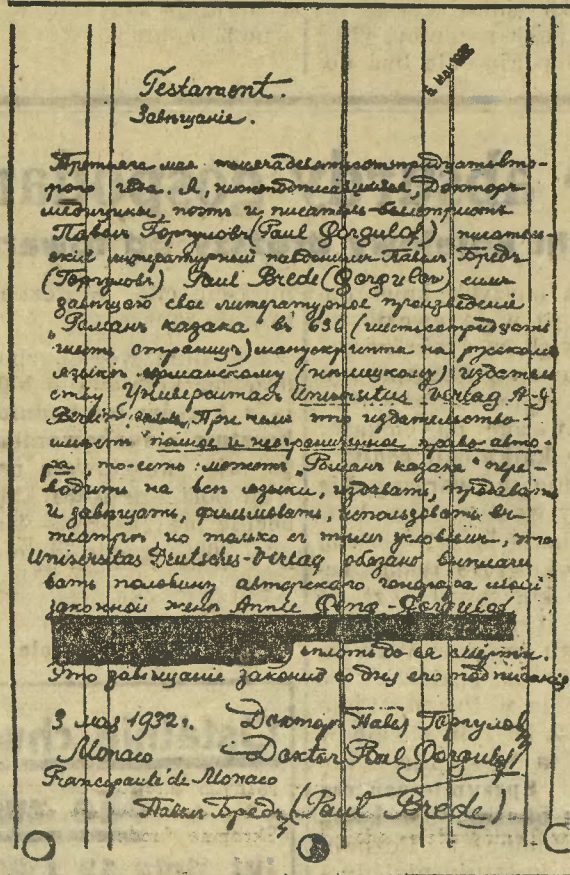 6. Mai 1932
Testament.
Завѣщаніе.
Третьяго мая тысячадевятьсоттридцатьвто-
рого года. Я, нижеподписавшійся, Докторъ
медицины, поэтъ и писатель-беллетристъ
Павелъ Горгуловъ (Paul Gorgulof) писатель-
скій литературный псевдонимъ Павелъ Бредъ
(Горгуловъ) Paul Brede (Gorgulov) симъ
завѣщаю свое литературное произведеніе
„Романъ казака" въ 636 (шестьсоттридцать
шесть страницъ) манускрипта на русскомъ
языкѣ германскому (нѣмецкому) издатель
ству Университасъ Universitas Verlag A-G.
Berlin. При чемъ это издательство
имѣетъ полное и неограниченное право авто-
ра, то-есть: можетъ „Романъ казака" пере-
водить на всѣ языки, издавать, продавать
и завѣщать, фильмовать, использовать въ
театрѣ, но только съ тѣмъ условіемъ, что
Universitas Deutsches-Verlag обязано выплачи
вать половину авторскаго гонорара моей
законной женѣ Annie Geng-Gorgulof
вплоть до ея смерти.
Это завѣщаніе законно со дня его подписанія
3 мая 1932 г. Докторъ Павел Горгулов
Monaco Doktor Paul Gorgulof
de Monaco
Павелъ Бредъ (Paul Brede)